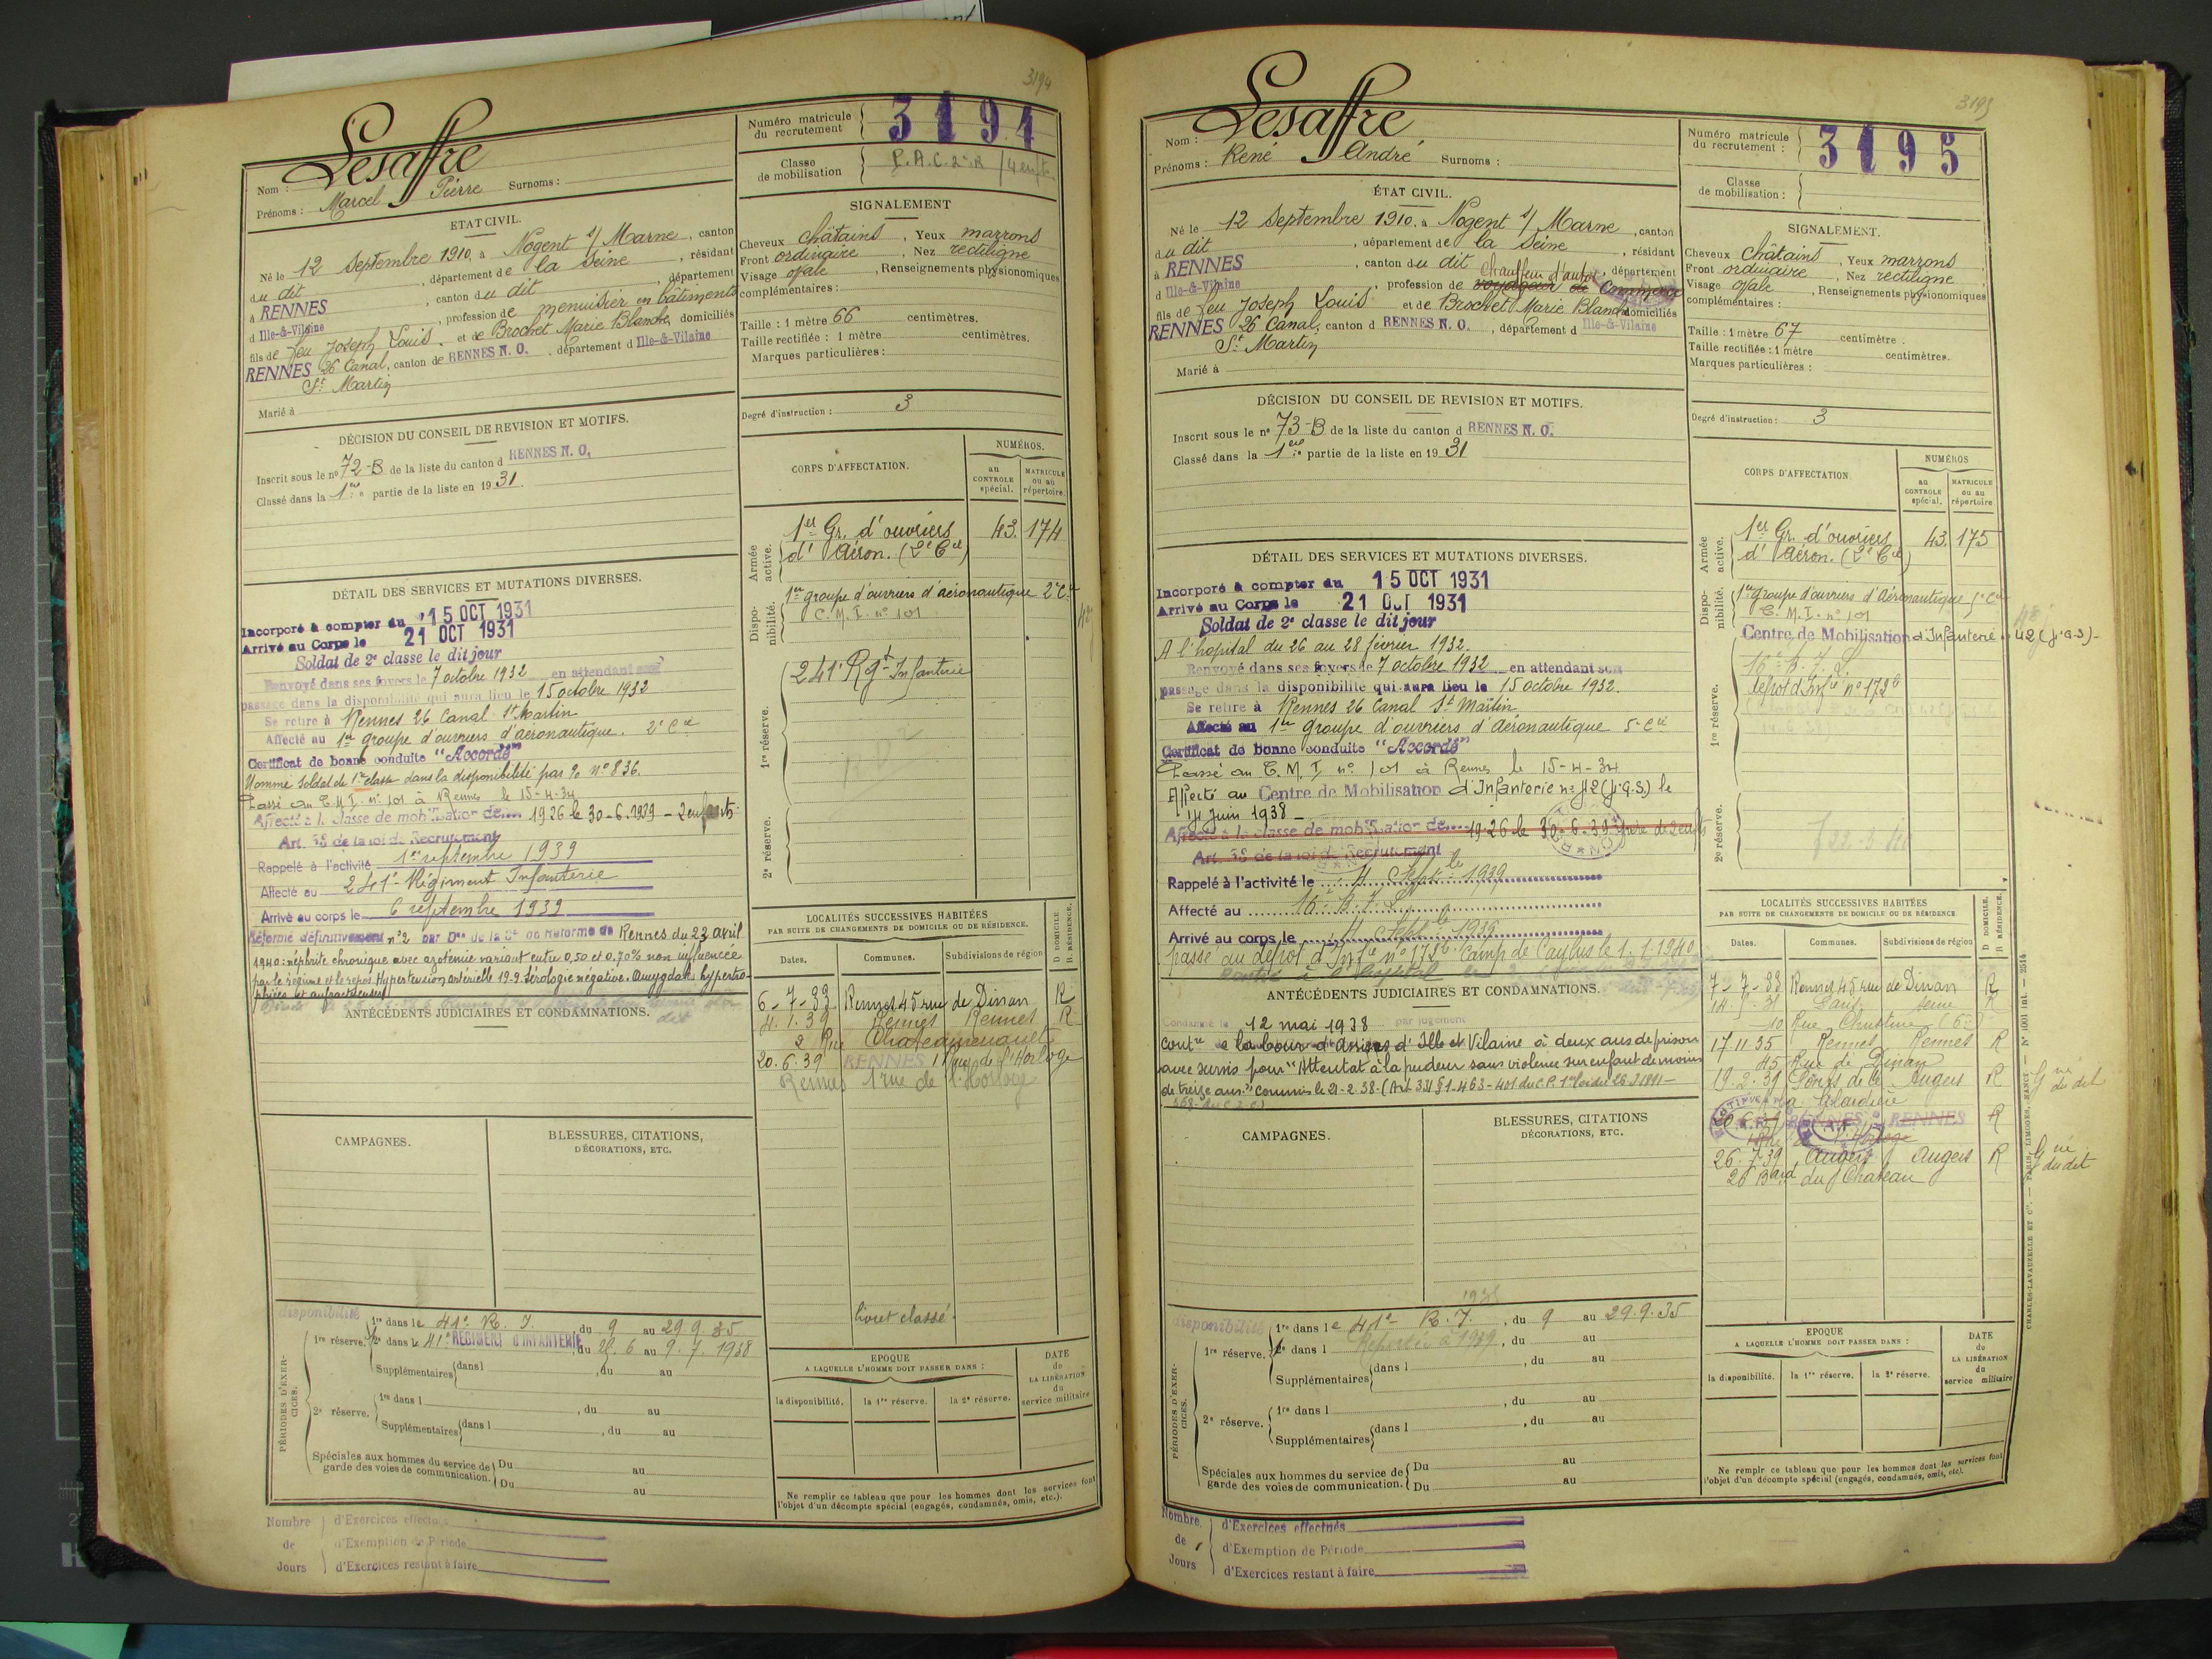 3194
Lesaffre
Nom :
Prénoms : Marcel Pierre Surnoms :
ETAT CIVIL.
Né le 12 Septembre 1910, à Nogent s/ Marne, canton
du dit, département de la Seine, résidant
à RENNES, canton du dit, département
d Ille-&-Vilaine, profession de menuisier en bâtiments
fils de feu Joseph Louis. et de Brochet Marie Blanche, domiciliés
RENNES 26 Canal, canton de RENNES N. O., département d Ille-&-Vilaine
St Martin
Marié à
DÉCISION DU CONSEIL DE REVISION ET MOTIFS.
Inscrit sous le n° 72-B de la liste du canton d RENNES N. O.
Classé dans la 1ère partie de la liste en 19 31.
DÉTAIL DES SERVICES ET MUTATIONS DIVERSES.
Incorporé à compter du 15 OCT 1931
Arrivé au Corps le 21 OCT 1931
Soldat de 2e classe le dit jour
Renvoyé dans ses foyers le 7 octobre 1932 en attendant son
passage dans la disponibilité qui aura lieu le 15 octobre 1932
Se retire à Rennes 26 Canal St Martin
Affecté au 1er groupe d'ouvriers d'aéronautique. 2e Cie
Certificat de bonne conduite "Accordé"
Nommé soldat de 1re classe dans la disponibilité par n° 836.
Passé au C.M.I. n° 101 à Rennes le 15-4-34
Affecté à la classe de mobilisation de 1926 le 30-6-1939 - 2 enfants
Art. 58 de la loi de Recrutement
Rappelé à l'activité 1er septembre 1939
Affecté au 241e Régiment Infanterie
Arrivé au corps le 6 septembre 1939
Réformé définitivement n°2 par Don de la Con de Réforme de Rennes du 23 avril
1940 : néphrite chronique avec azotémie variant entre 0,50 et 0,70% non influencée
par le régime et le repos. Hypertension artérielle 19-9. Sérologie négative. Amygdales hypertro-
phiées et anfractueuses
ANTÉCÉDENTS JUDICIAIRES ET CONDAMNATIONS.
CAMPAGNES.
BLESSURES, CITATIONS,
DÉCORATIONS, ETC.
disponibilité
PÉRIODES D'EXERCICES.
1re réserve. 1re dans le 41e R. I. du 9 au 29 9. 35
2e dans le 41e RÉGIMENT D'INFANTERIE, du 20. 6 au 9. 7. 1938
Supplémentaires dans l , du au
2e réserve. 1re dans l , du au
Supplémentaires dans l , du au
Spéciales aux hommes du service de
garde des voies de communication.
Du au
Du au
Nombre
de
Jours
d'Exercices effectués
d'Exemption de Période
d'Exercices restant à faire
Numéro matricule
du recrutement
3194
Classe
de mobilisation
P.A.C. 2e R / 4 enfts
SIGNALEMENT
Cheveux châtains, Yeux marrons
Front ordinaire, Nez rectiligne
Visage ovale, Renseignements physionomiques
complémentaires :
Taille : 1 mètre 66 centimètres.
Taille rectifiée : 1 mètre centimètres.
Marques particulières :
Degré d'instruction : 3
CORPS D'AFFECTATION.
NUMÉROS.
au
CONTROLE
spécial.
MATRICULE
ou au
répertoire
Armée
active.
1er Gr. d'ouvriers 43. 174
d' Aéron. (2e Cie)
Disponibilité.
1er groupe d'ouvriers d'aéronautique 2e Cie
C. M. I. n° 101
1re réserve.
241e Rgt Infanterie
2e réserve.
LOCALITÉS SUCCESSIVES HABITÉES
PAR SUITE DE CHANGEMENTS DE DOMICILE OU DE RÉSIDENCE.
D. DOMICILE.
R. RÉSIDENCE.
Dates. Communes. Subdivisions de région
6-7-33 Rennes 45 rue de Dinan R
4. 1. 39 Rennes Rennes R
2 Rue Chateaurenault
20. 6. 39 RENNES 1 rue de l'Horloge
Rennes 1 rue de l'Horloge
livret classé.
EPOQUE
A LAQUELLE L'HOMME DOIT PASSER DANS :
DATE
de
LA LIBÉRATION
du
service militaire
la disponibilité. la 1re réserve. la 2e réserve.
Ne remplir ce tableau que pour les hommes dont les services font
l'objet d'un décompte spécial (engagés, condamnés, omis, etc.).
3195
Lesaffre
Nom :
Prénoms : René André Surnoms :
ÉTAT CIVIL.
Né le 12 Septembre 1910, à Nogent s/ Marne, canton
du dit, département de la Seine, résidant
à RENNES, canton du dit, département
chauffeur d'autos
d Ille-&-Vilaine, profession de voyageur de Commerce
fils de feu Joseph Louis et de Brochet Marie Blanche domiciliés
RENNES 26 Canal, canton d RENNES N. O., département d Ille-&-Vilaine
St Martin
Marié à
DÉCISION DU CONSEIL DE REVISION ET MOTIFS.
Inscrit sous le n° 73-B de la liste du canton d RENNES N. O.
Classé dans la 1ère partie de la liste en 19 31
DÉTAIL DES SERVICES ET MUTATIONS DIVERSES.
Incorporé à compter du 15 OCT 1931
Arrivé au Corps le 21 OCT 1931
Soldat de 2e classe le dit jour
A l'hopital du 26 au 28 février 1932.
Renvoyé dans ses foyers le 7 octobre 1932 en attendant son
passage dans la disponibilité qui aura lieu le 15 octobre 1932.
Se retire à Rennes 26 Canal St Martin
Affecté au 1er groupe d'ouvriers d'aéronautique 5e Cie
Certificat de bonne conduite "Accordé"
Passé au C. M. I. n° 101 à Rennes le 15-4-34
Affecté au Centre de Mobilisation d'Infanterie n° 42 (j.g.s) le
14 Juin 1938 -
Affecté à la classe de mobilisation de 1926 le 30-6-39 père de 2 enfts
Art. 58 de la loi de Recrutement
Rappelé à l'activité le 4 Septbre 1939
Affecté au 16e B. I. L.
Arrivé au corps le 4 Septbre 1939
passé au dépot d'Infie n° 172b Camp de Caylus le 1. 1. 1940
ANTÉCÉDENTS JUDICIAIRES ET CONDAMNATIONS.
Condamné le 12 mai 1938 par jugement
contre la Cour d'Assises d'Ille et Vilaine à deux ans de prison
avec sursis pour "Attentat à la pudeur sans violence sur enfant de moins
de treize ans" commis le 21-2-38- (Art 331 § 1-463-401 du C.P. 1re loi du 26-3-1891-
368 du C.I.C.)
CAMPAGNES.
BLESSURES, CITATIONS
DÉCORATIONS, ETC.
disponibilité
1935
PÉRIODES D'EXERCICES.
1re réserve. 1re dans le 41e R. I., du 9 au 29. 9. 35
2e dans l Reportée à 1939, du au
Supplémentaires dans l , du au
2e réserve. 1re dans l , du au
Supplémentaires dans l , du au
Spéciales aux hommes du service de
garde des voies de communication.
Du au
Du au
Nombre
de
Jours
d'Exercices effectués
d'Exemption de Période
d'Exercices restant à faire
Numéro matricule
du recrutement :
3195
Classe
de mobilisation :
SIGNALEMENT.
Cheveux châtains, Yeux marrons
Front ordinaire, Nez rectiligne
Visage ovale, Renseignements physionomiques
complémentaires :
Taille : 1 mètre 67 centimètre.
Taille rectifiée : 1 mètre centimètres.
Marques particulières :
Degré d'instruction : 3
CORPS D'AFFECTATION
NUMÉROS
au
CONTROLE
spécial.
MATRICULE
ou au
répertoire
Armée
active.
1er Gr. d'ouvriers 43. 175
d' Aéron. (2e Cie)
Disponibilité.
1er groupe d'ouvriers d'Aéronautique 5e Cie
C. M. I. n° 101
Centre de Mobilisation d'Infanterie n° 42 (j.g.s)-
1re réserve.
16e B. I. L.
dépot d'Infie n° 172b
2e réserve.
LOCALITÉS SUCCESSIVES HABITÉES
PAR SUITE DE CHANGEMENTS DE DOMICILE OU DE RÉSIDENCE
D DOMICILE.
R RÉSIDENCE.
Dates. Communes. Subdivisions de région
7-7-33 Rennes 45 rue de Dinan R
Paris Seine R
10 Rue Christine (6e)
17 11 35 Rennes Rennes R
45 Rue de Dinan
19. 2. 39 Ponts de Cé Angers R Gne du dit
20.6.39 RENNES RENNES R
26. 7. 39 Angers Angers R Gne du dit
26 Bard du Chateau
EPOQUE
A LAQUELLE L'HOMME DOIT PASSER DANS :
DATE
de
LA LIBÉRATION
du
service militaire
la disponibilité. la 1re réserve. la 2e réserve.
Ne remplir ce tableau que pour les hommes dont les services font
l'objet d'un décompte spécial (engagés, condamnés, omis, etc).
CHARLES-LAVAUZELLE ET Cie. — PARIS, LIMOGES, NANCY — N° 1001 int. — 2514